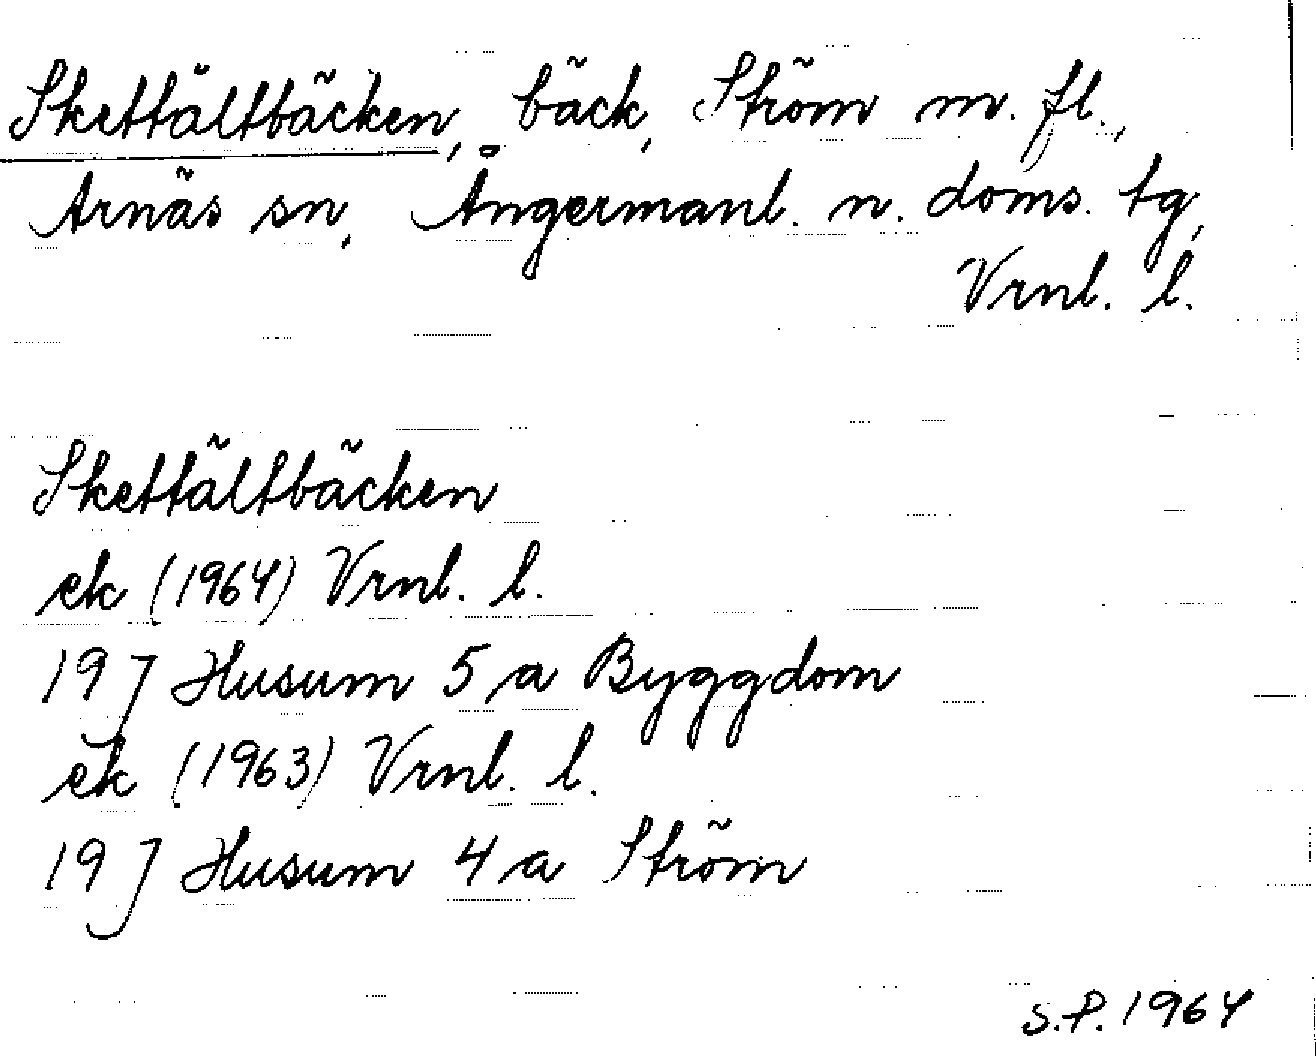 Skettältbäcken, bäck, Ström m. fl.,
Arnäs sn, Ångermanl. n. doms. tg,
Vrnl. l.
Skettältbäcken
ek (1964) Vrnl. l.
19 J Husum 5 a Byggdom
ek (1963) Vrnl. l.
19 J Husum 4 a Ström
S.P. 1964